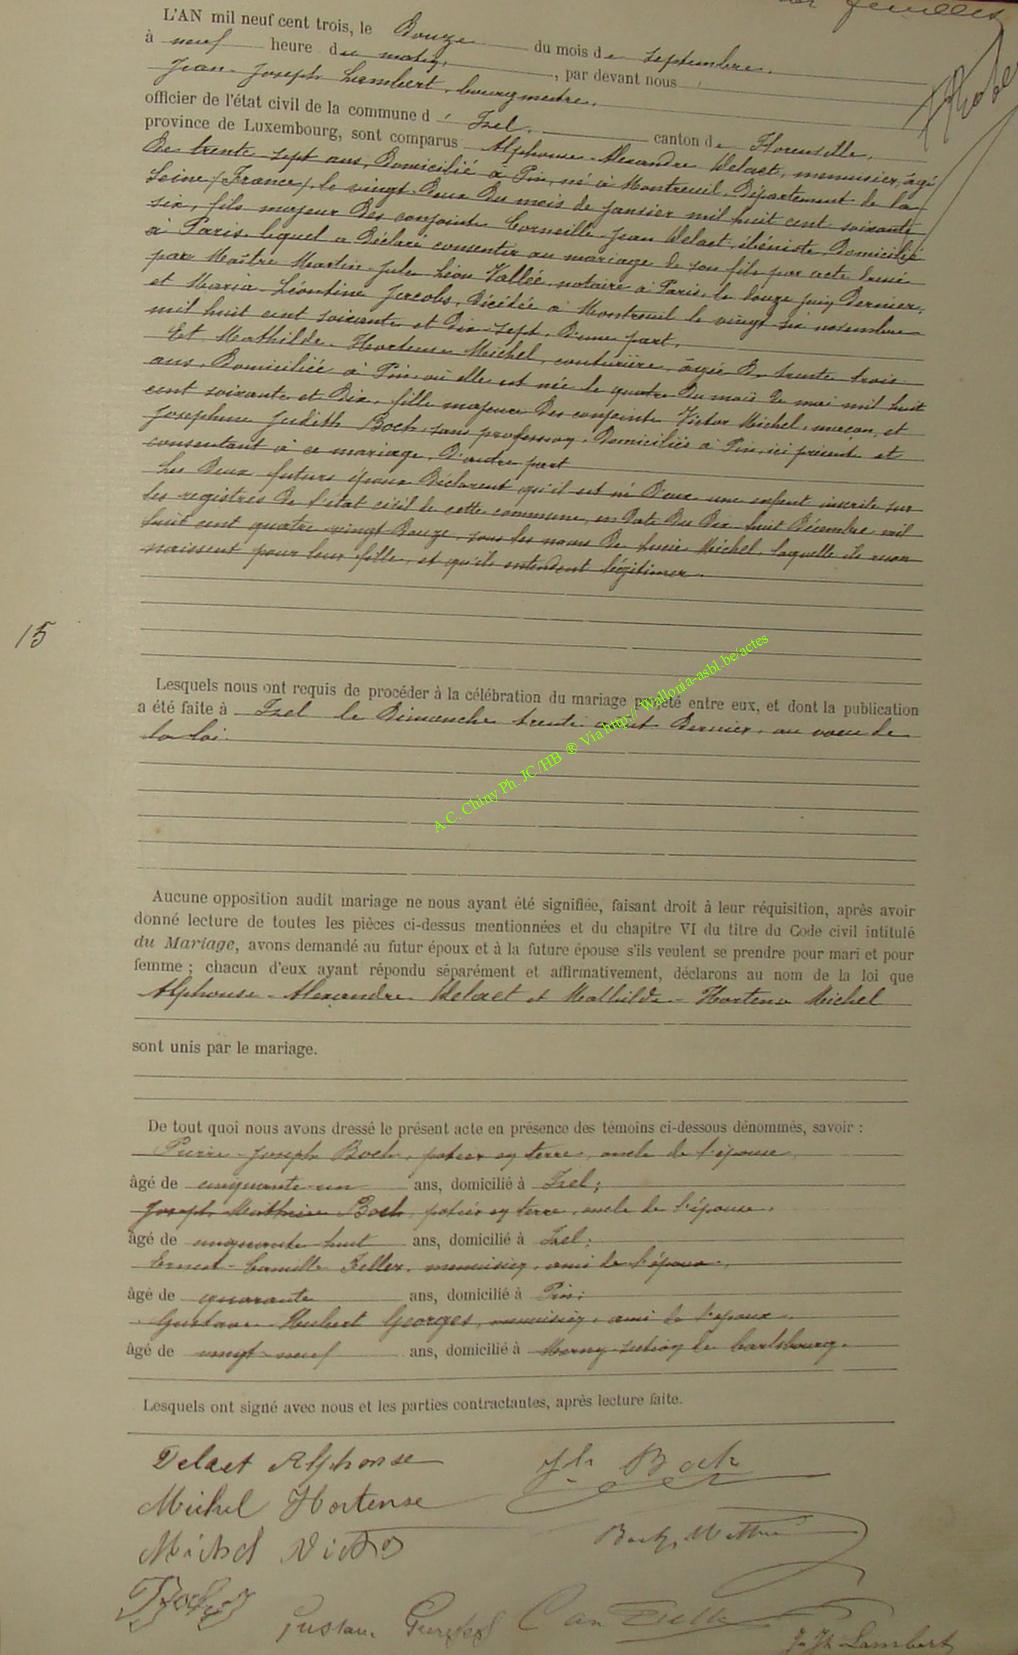 feuillets
L'AN mil neuf cent trois, le Douze du mois de septembre,
à neuf heure du matin, par devant nous
Jean-Joseph Lambert, bourgmestre,
officier de l'état civil de la commune d'Izel, canton de Florenville,
province de Luxembourg, sont comparus Alphonse-Alexandre Delaet, menuisier, âgé
De trente-sept ans, Domicilié à Pin, né à Montreuil, Département de la
Seine (France) le vingt-Deux Du mois de janvier mil huit cent soixante
six, fils majeur Des conjoints Corneille-Jean Delaet, ébéniste, Domicilié
à Paris, lequel a Déclaré consentir au mariage de son fils par acte
par Maître Martin-Jules-Léon Vallée, notaire à Paris, le Douze juin Dernier,
et Maria-Léontine Jacobs, Décédée à Montreuil le vingt-six novembre
mil huit cent soixante et Dix-sept, D'une part,
Et Mathilde-Hortense Michel, couturière, âgée De trente trois
ans, Domiciliée à Pin, où elle est née le quatre Du mois De mai mil huit
cent soixante et Dix, fille majeure Des conjoints Victor Michel, maçon, et
Josephine Judith Boch, sans profession, Domiciliés à Pin, ici présents et
consentant à ce mariage, D'autre part
Les Deux futurs époux Déclarent qu'il est né D'eux une enfant inscrite sur
les registres De l'état civil de cette commune, en Date Du Dix-huit Décembre mil
huit cent quatre-vingt Douze, sous les noms De Lucie Michel, laquelle ils recon
naissent pour leur fille, et qu'ils entendent légitimer.
15
Lesquels nous ont requis de procéder à la célébration du mariage projeté entre eux, et dont la publication
a été faite à Izel le Dimanche trente août Dernier, au voeu de
la loi.
A.C. Chiny Ph. JC/HB ® Via http://Wallonia-asbl.be/actes
Aucune opposition audit mariage ne nous ayant été signifiée, faisant droit à leur réquisition, après avoir
donné lecture de toutes les pièces ci-dessus mentionnées et du chapitre VI du titre du Code civil intitulé
du Mariage, avons demandé au futur époux et à la future épouse s'ils veulent se prendre pour mari et pour
femme ; chacun d'eux ayant répondu séparément et affirmativement, déclarons au nom de la loi que
Alphonse-Alexandre Delaet et Mathilde-Hortense Michel
sont unis par le mariage.
De tout quoi nous avons dressé le présent acte en présence des témoins ci-dessous dénommés, savoir :
Pierre-Joseph Boch, potier en terre, oncle de l'épouse,
âgé de cinquante-un ans, domicilié à Izel;
Joseph-Mathieu Boch, potier en terre, oncle de l'épouse,
âgé de cinquante-huit ans, domicilié à Izel;
Ernest-Camille Zeller, menuisier, ami de l'époux,
âgé de quarante ans, domicilié à Pin;
Gustave-Hubert Georges, menuisier, ami de l'époux,
âgé de vingt-neuf ans, domicilié à section de Carlsbourg.
Lesquels ont signé avec nous et les parties contractantes, après lecture faite.
Delaet Alphonse
Jh Boch
Michel Hortense
Michel Victor
Boch Mathieu
Gustave Georges
J. Jh. Lambert